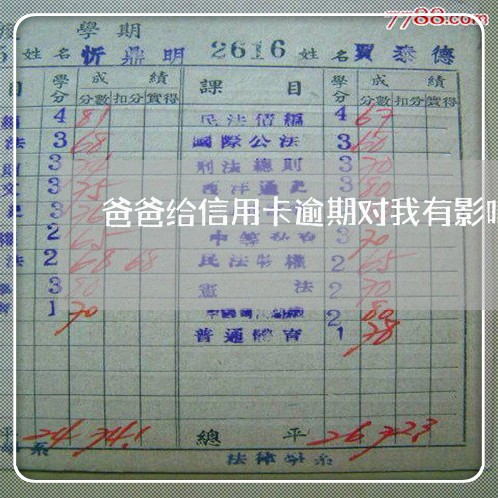 7788.com
學期
5 姓名 忻鼎明 2616 姓名 賈泰德
目 學分 成績 課目 學分 成績
分數 扣分 實得 分數 扣分 實得
4 81 民法債編 4 67
法 3 68 國際公法 3 60
3 刑法總則 3 70
3 75 西洋通史 3 80
爸爸给信用卡逾期对我有影响
2 65 3 70
法 2 68 68 民法物權 2 65
3 80 憲法 2 70
1 70 2 80
普通體育 1 78
平 24 74.1 總平 26 72.3
系 法律學系